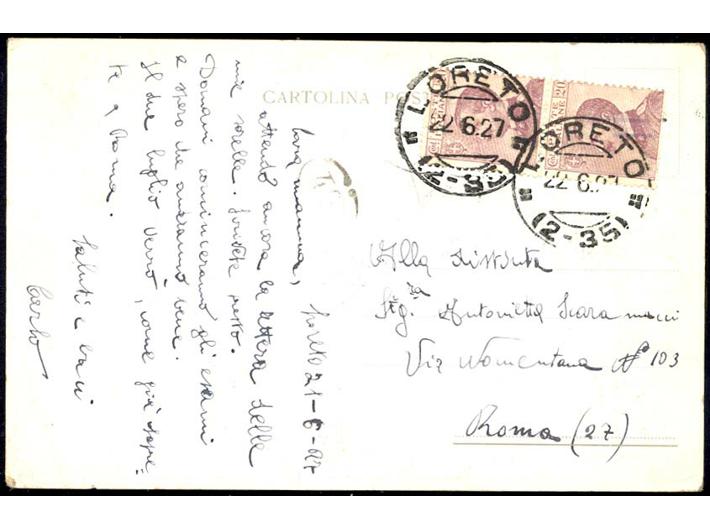 CARTOLINA POST
LORETO
22.6.27
(2-35)
LORETO
22.6.27
(2-35)
Loreto 21-6-27
Cara mamma,
attendo ancora la lettera delle
mie sorelle. Scrivete presto.
Domani cominceranno gli esami
e spero che andranno bene.
Il due luglio verrò, come già sape=
te a Roma.
Saluti e baci
Carlo
Alla Distinta
Sig.ra Antonietta Scaramucci
Via Nomentana N° 103
Roma (27)